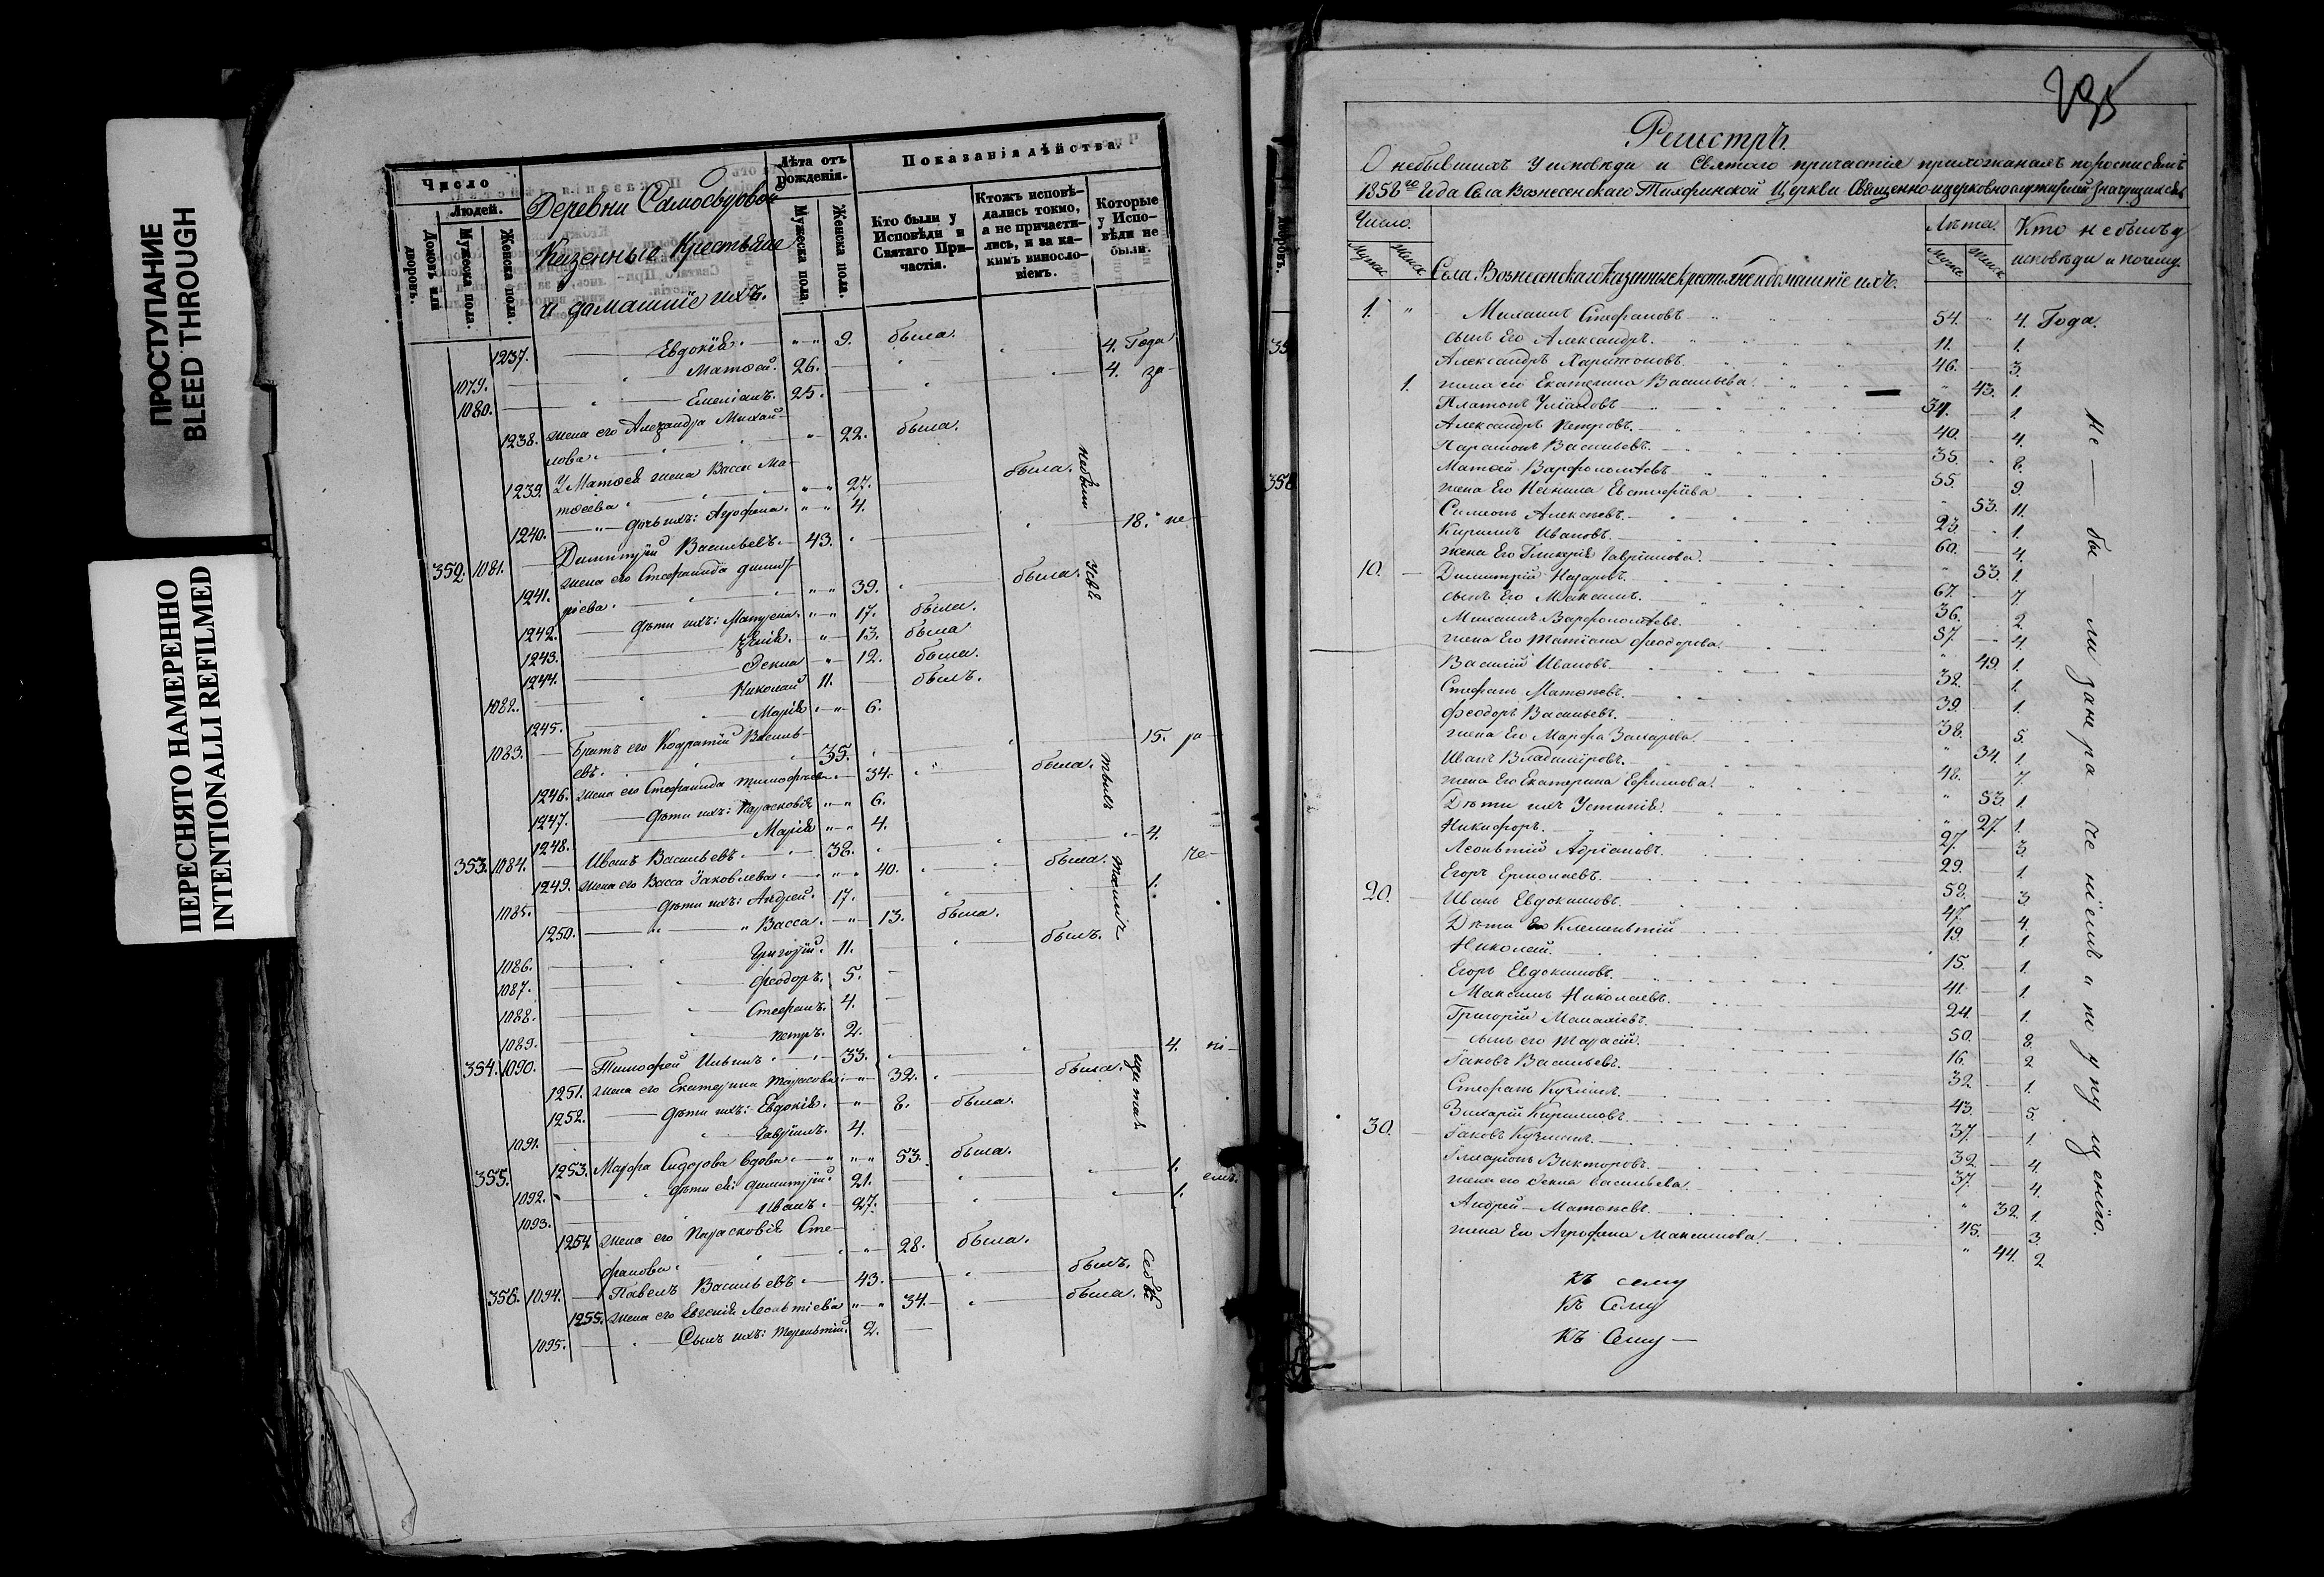 ПРОСТУПАНИЕ
BLEED THROUGH
ПЕРЕСНЯТО НАМЕРЕННО
INTENTIONALLI REFILMED
Число
Людей.
Домовъ или дворовъ.
Мужеска пола.
Женска пола.
Деревни
Казенные Крестьяне
и домашніе ихъ.
Лѣта отъ рожденія.
Мужеска пола.
Женска пола.
Показанія дѣйства.
Кто были у Исповѣди и Святаго Причастія.
Ктожъ исповѣдались токмо, а не причастились, и за какимъ винословіемъ.
Которые у Исповѣди не были.
1237. Евдокія. 9. была.
1079. Матвей. 26. 4. Года
1080. Емеліанъ. 25. 4. за
1238. жена его Александра Михайлова. 22. была.
1239. У Матвея жена Васса Матвеева 27. была.
1240. дочь ихъ: Агрофена. 4.
352. 1081. Димитрій Васильевъ. 43. 18. не
1241. жена его Стефанида Димитріева. 39. была.
1242. дѣти ихъ: Матрена. 17. была.
1243. 13. была
1244. 12. была.
1082. Николай 11. былъ.
1245. Марія 6.
1083. Братъ его Кодратій Васильевъ. 35. 15. ра
1246. жена его Стефанида Тимофеева 34. была.
1247. дѣти ихъ: Парасковія 6.
1248. Марія 4.
353. 1084. Иванъ Васильевъ. 38. 4. че
1249. жена его Васса Іаковлева 40. была.
1085. дѣти ихъ: Андрей. 17. 1.
1250. Васса. 13. была.
1086. Григорій. 11. былъ.
1087. Феодоръ. 5.
1088. Стефанъ. 4.
1089. Петръ. 2.
354. 1090. Тимофей Ильинъ. 33. 4. ні
1251. жена его Екатерина Тарасова 32. была.
1252. дѣти ихъ: Евдокія. 8. была.
1091. Гавріилъ. 4.
355. 1253. Марфа Сидорова вдова 53. была.
1092. дѣти ея: Димитрій 21. 1. емъ.
1093. Иванъ. 27. 1.
1254. жена его Парасковія Стефанова 28. была.
356. 1094. Павелъ Васильевъ. 43. былъ.
1255. жена его Евгенія Леонтіева 34. была.
1095. Сынъ ихъ: Терентій 2.
295
Регистръ
О небывшихъ У исповѣди и Святаго причастія прихожанахъ по росписямъ
1858го Года Села Вознесенскаго Тихфинской Церкви
Число.
Мужес. Женск.
Села Вознесенскаго Казенные крестьяне и домашніе ихъ.
Лѣта.
Мужес. Женск.
Кто не былъ у исповѣди и почему.
1. Михаилъ Стефановъ 54. 4. Года.
сынъ Его Александръ. 11. 1.
Александръ Харитоновъ 46. 3.
1. жена его Екатерина Васильева. 43. 1.
Платонъ 34. 1.
Александръ Петровъ. 40. 4.
Парамонъ Васильевъ. 35. 8.
Матвей Варфоломѣевъ 55. 9.
жена Его Ненила Евстафіева 53. 11.
Симеонъ Алексѣевъ. 23. 1.
Кирилъ Ивановъ. 60. 4.
жена Его Гликерія Гавріилова. 53. 1.
10. Димитрій Назаровъ. 67. 7.
сынъ Его Максимъ. 36. 2.
Михаилъ Варфоломѣевъ. 57. 4.
жена Его Татіана Феодорова. 49. 1.
Василій Ивановъ. 32. 1.
Стефанъ Матвѣевъ. 39. 1.
Феодоръ Васильевъ. 38. 5.
жена Его Марфа Захарова. 34. 1.
Иванъ Владиміровъ. 48. 7.
жена Его Екатерина Ефимова. 53. 1.
Дѣти ихъ Устинія. 27. 1.
Никифоръ. 27. 3.
Леонтій Адріановъ. 29. 1.
Егоръ Ермолаевъ. 52. 3.
20. Иванъ Евдокимовъ. 47. 4.
Дѣти Его Клементій 19. 1.
Николай. 15. 1.
Егоръ Евдокимовъ. 41. 1.
Максимъ Николаевъ. 24. 1.
Григорій 50. 8.
сынъ его Тарасій. 16. 2
Іаковъ Васильевъ. 32 1.
Стефанъ Кузминъ. 43. 5.
30. Захарій Кириловъ. 37. 1.
Іаковъ Кузминъ. 32 4.
Иларіонъ Викторовъ. 37. 4.
жена его Васильева. 32. 1.
Андрей Матвѣевъ. 45. 3.
жена Его Агрофена Максимова. 44. 2
Не бы ли за не ра че ніемъ и по у пу ще нію.
къ сему
Къ Сему
Къ Сему